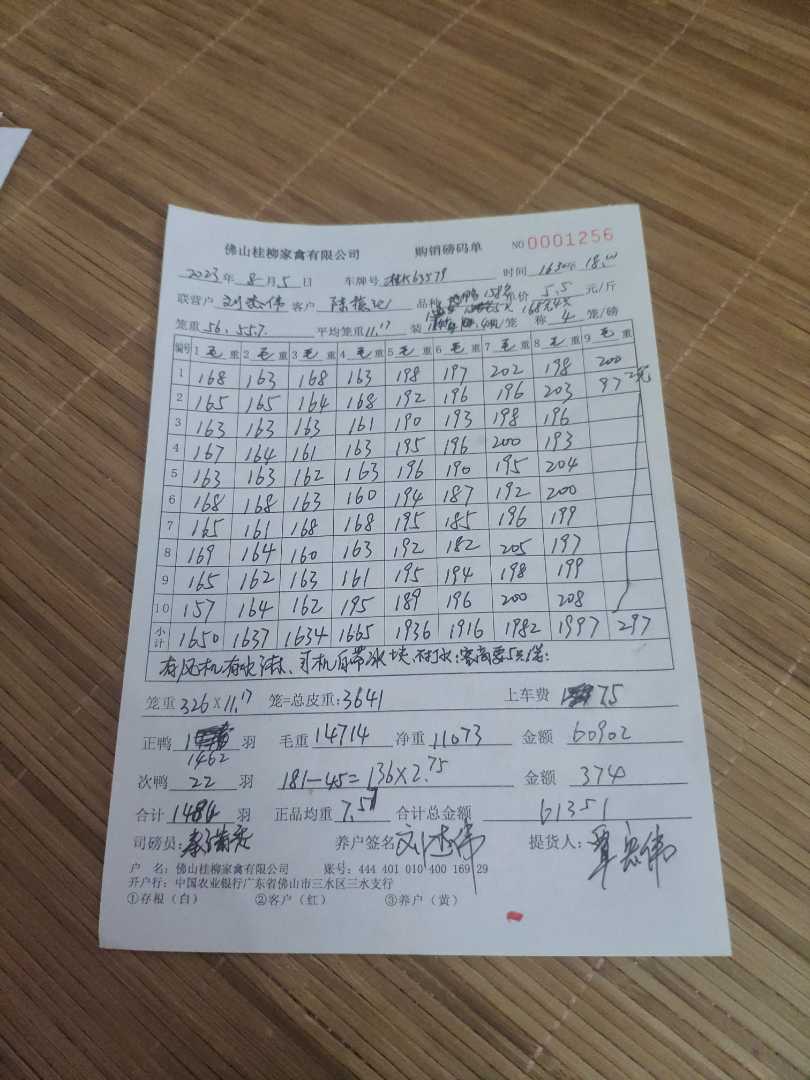 佛山桂柳家禽有限公司 购销磅码单 NO 0001256
2023年 8月 5日 车牌号 桂K63579 时间 1630 18:00
联营户 刘杰伟 客户 品种 158 单价 5.5 元/斤
笼重 56. 55.7 平均笼重 11.17 装 只/笼 称 4 笼/磅
编号 1 毛 重 2 毛 重 3 毛 重 4 毛 重 5 毛 重 6 毛 重 7 毛 重 8 毛 重 9 毛 重
1 168 163 168 163 198 197 202 198 200
2 165 165 164 168 192 196 196 203 97 2笼
3 163 163 163 161 190 193 198 196
4 167 164 161 163 195 196 200 193
5 163 163 162 163 196 190 195 204
6 168 168 163 160 194 187 192 200
7 165 161 168 168 195 185 196 199
8 169 164 160 163 192 182 205 197
9 165 162 163 161 195 194 198 199
10 157 164 162 195 189 196 200 208
小计 1650 1637 1634 1665 1936 1916 1982 1997 297
有风机有吹淋、司机自带冰块、
笼重 326 X 11.17 笼=总皮重: 3641 上车费 75
正鸭 1462 羽 毛重 14714 净重 11073 金额 60902
次鸭 22 羽 181-45=136X2.75 金额 374
合计 1484 羽 正品均重 7.57 合计总金额 61351
司磅员: 养户签名 刘杰伟 提货人: 覃宏伟
户 名: 佛山桂柳家禽有限公司 账号: 444 401 010 400 169 29
开户行: 中国农业银行广东省佛山市三水区三水支行
①存根(白) ②客户(红) ③养户(黄)